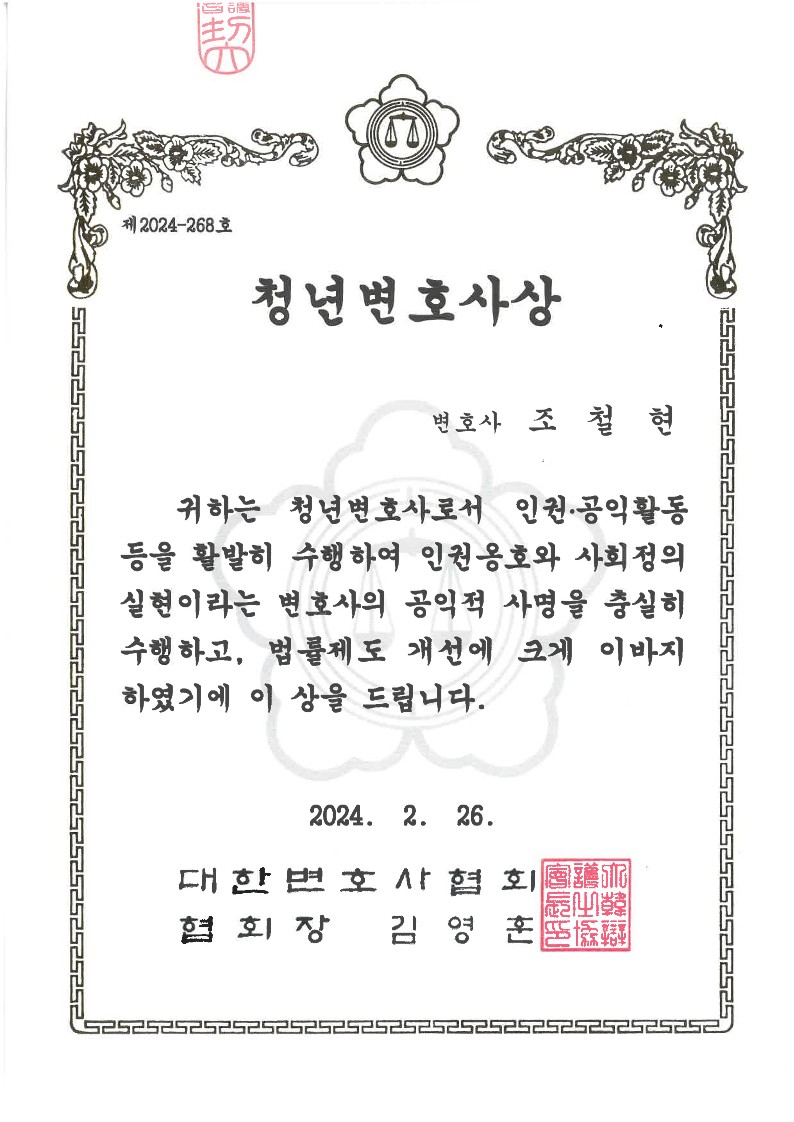 제2024-268호
청년변호사상
변호사 조 철 현
귀하는 청년변호사로서 인권·공익활동
등을 활발히 수행하여 인권옹호와 사회정의
실현이라는 변호사의 공익적 사명을 충실히
수행하고, 법률제도 개선에 크게 이바지
하였기에 이 상을 드립니다.
2024. 2. 26.
대한변호사협회
협회장 김영훈